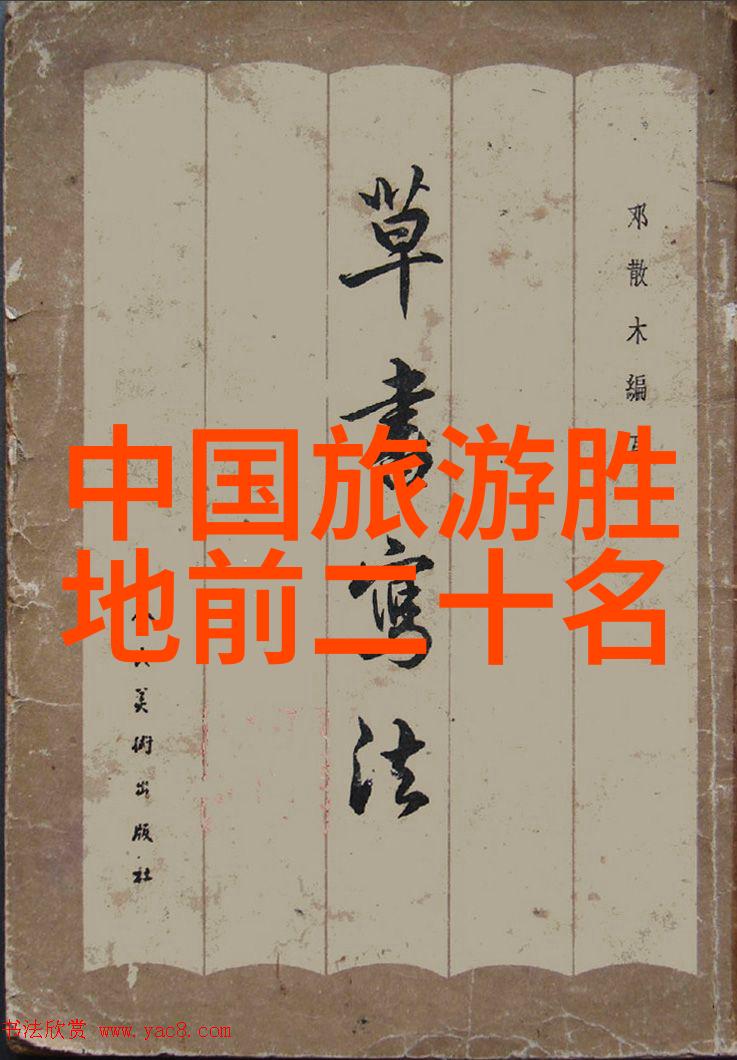 中国旅游胜
地前二十名
邓散木编
草书写法
人民美術出版社
书法欣赏 www.yac8.com